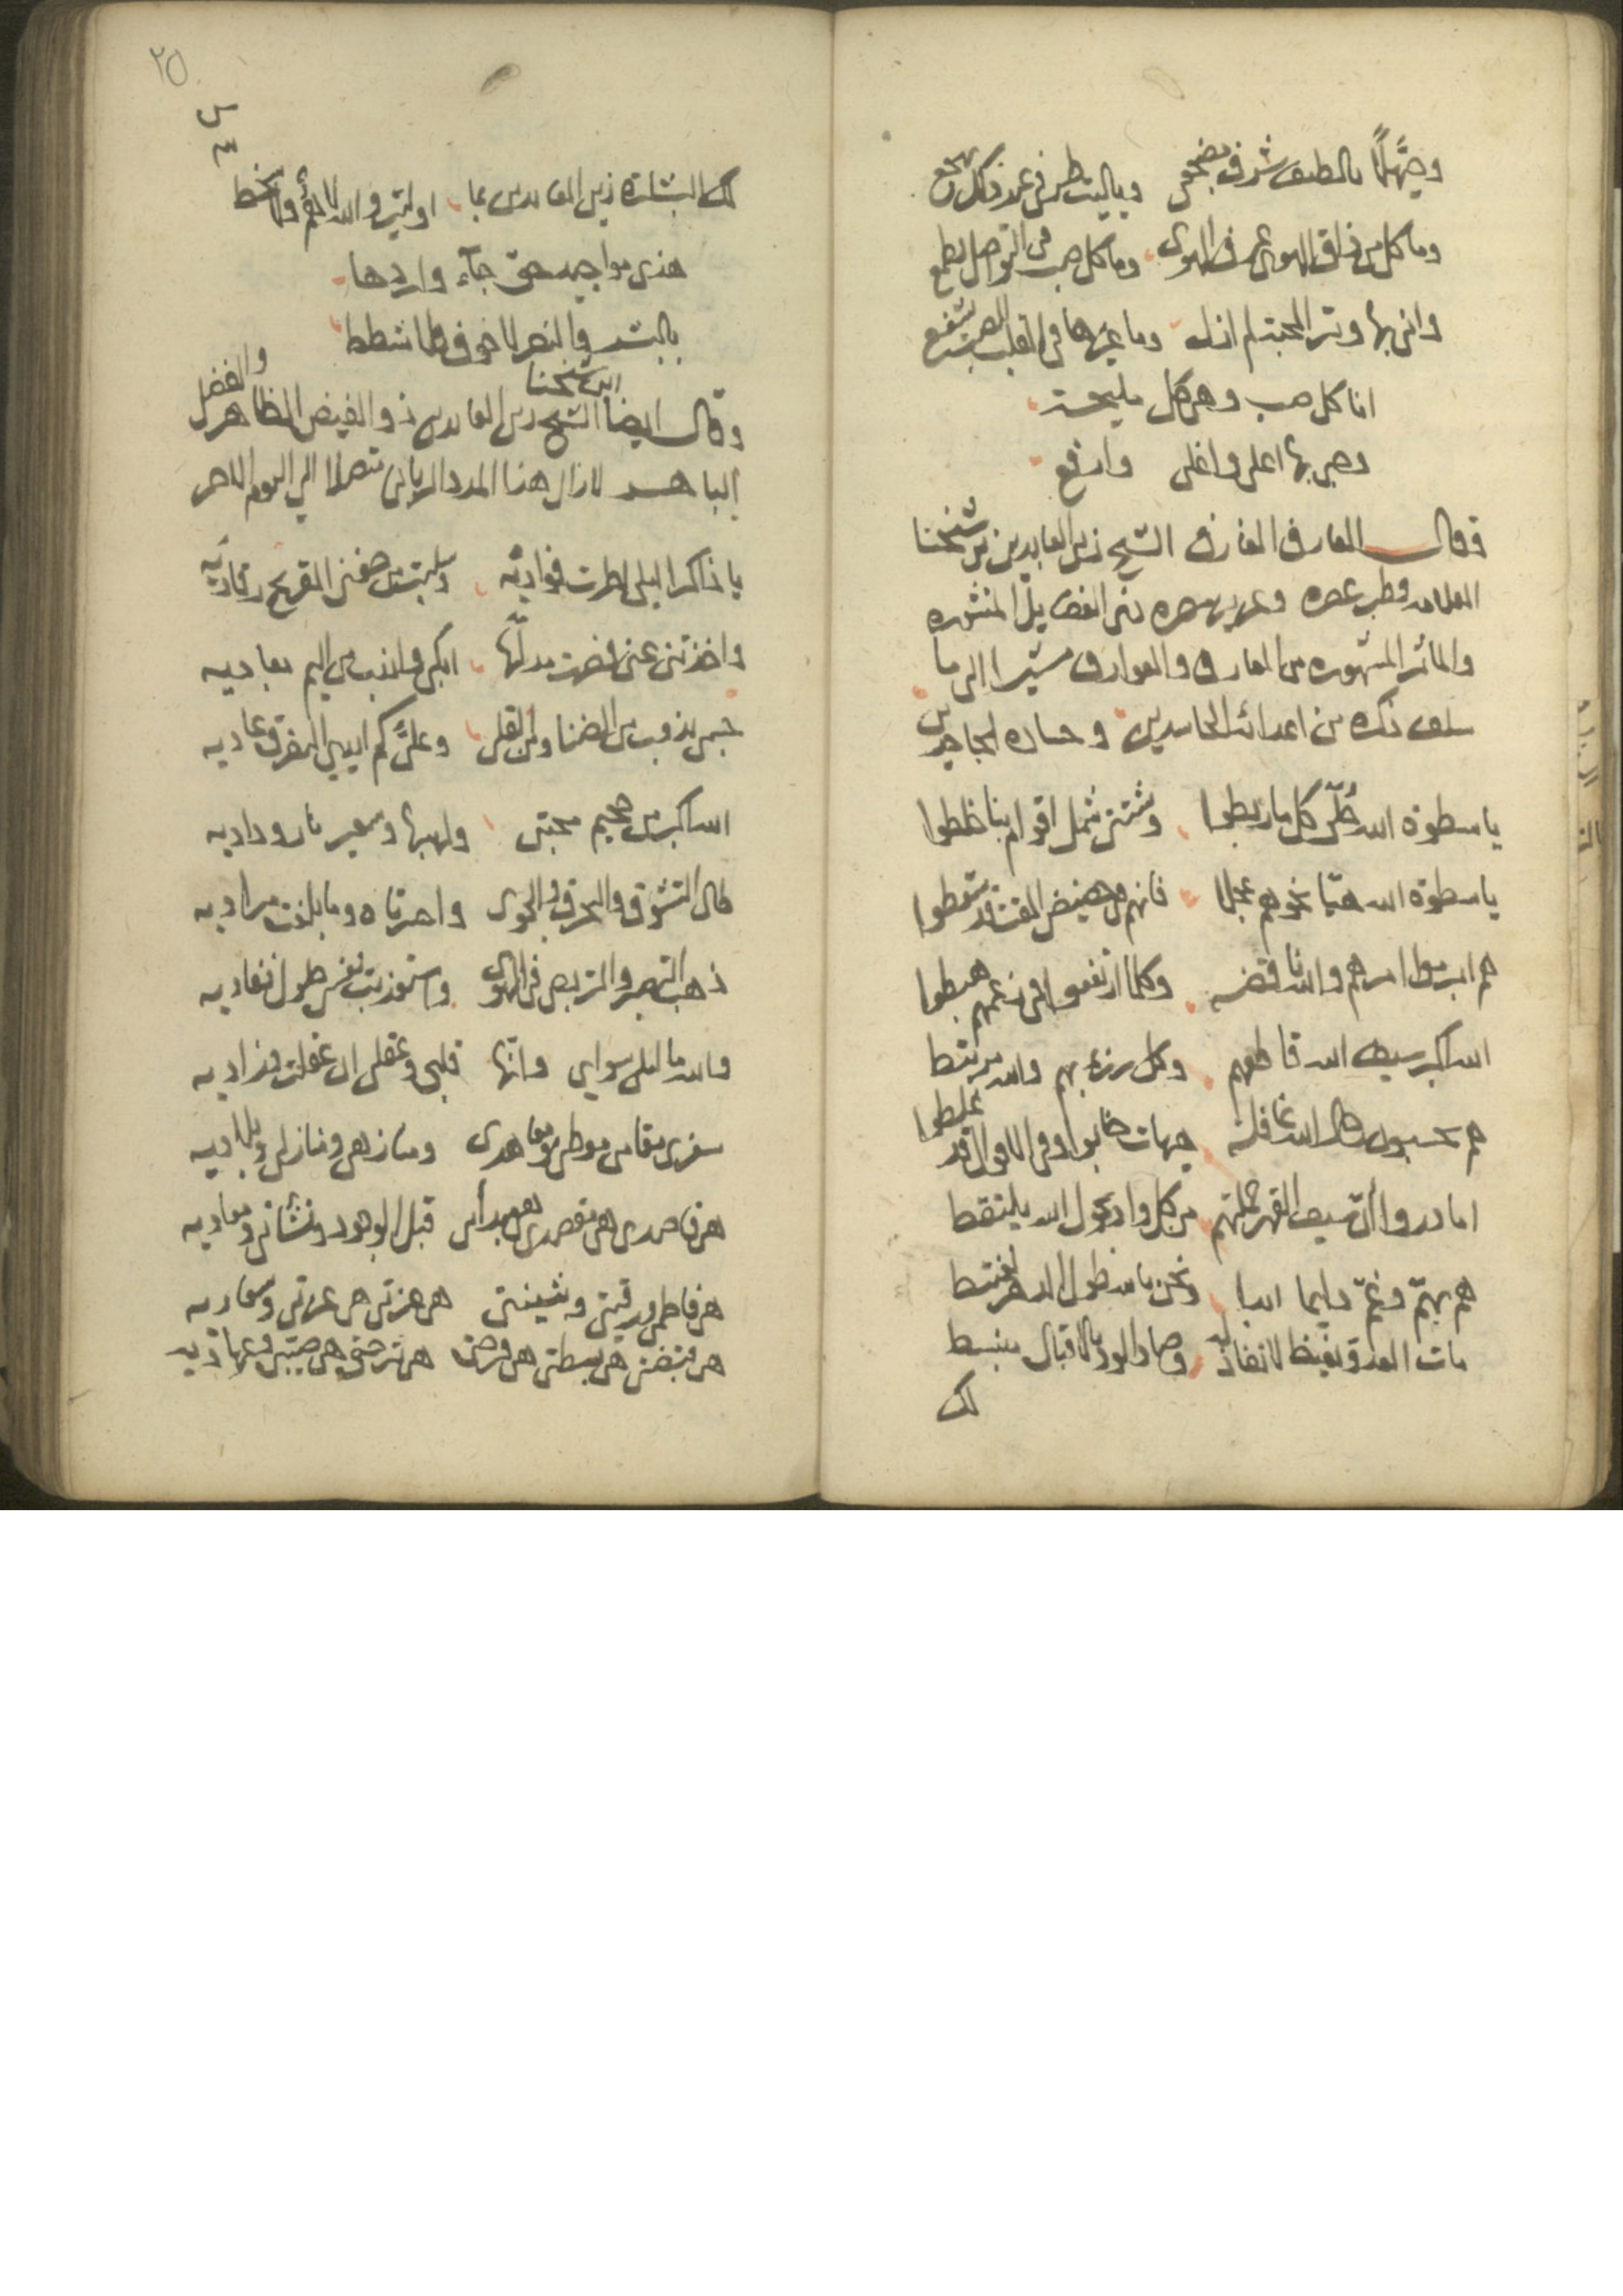 بالطيف شرف مضجعي وياليت طرفي عند ذلك يهجع
وما كل من ذاق الهوى عرف الهوى وما كل صب في التواصل يطمع
واني بها وتر المحبة لم ازل وما غيرها في القلب للصب يشفع
انا كل صب وهي كل مليحة
وهي بها اعلى واغلى وارفع
وقال العارف الغارف الشيخ زين العابدين بن شيخنا
العلامه قطب عصره وعزيز مصره ذي الفضايل المنثوره
والمآثر المشهوره من المعارف والعوارف مشيرا الى ما
سلف ذكره من اعدائه الحاسدين وحساده الجاحدين
ياسطوة الله حلي كل ما ربطوا وشتتي شمل اقوام بنا خلطوا
ياسطوة الله هيا نحوهم عجلا فانهم من حضيض المقت قد سقطوا
هم ابرموا امرهم والله ناقضه وكلما ارتفعوا في زعمهم هبطوا
الله اكبر سيف الله قاطعهم وكل من بهم والله مرتبط
هم يحسبون رجال الله غافلة هيهات خابوا وفي الاقوال قد غلطوا
اما دروا أن سيف القهر جملتهم من كل واد بحول الله يلتقط
هم بهم وغم دايما ابدا ونحن بالله طول الدهر نغتبط
مات العدو بغيظ لا نفاذ له وصار الود بالاقبال منبسط
لك
٢٥
لك البشارة زين العابدين بما اوليت والله لا هم ولا سخط
هذي مواجيد حق جآء واردها
بالبشر والنصر لا خوف ولا شطط
وقال ايضا الشيخ زين العابدين ابن شيخنا ذو الفيض الظاهر والفضل
الباهر لازال هذا المدد الرباني متصلا الى اليوم الاخر
يا ذاكرا ليلى اطرت فواديه وسلبت من جفني القريح رقاديه
واخذتني عني فصرت مدلها ابكي واندب من اليم بعاديه
جسمي يذوب من الضنا ومن القلى وعلي كم ابدي التفرق عاديه
الله اكبر من جحيم محبتي ولهيبها وسعير نار وداديه
طال التشوق والتحرق والجوى واحسرتاه وما بلغت مراديه
ذهب التصبر والتربص في الهوى واستعذبت نفسي طول نفاديه
والله ما ليلى سواي وانها قلبي وعقلي ان عقلت فؤاديه
سفري مقامي موطني ومعاهدي ومنازهي ومنازلي وبلاديه
هي قاصدي هي مقصدي هي مبدأي قبل الوجود ونشأتي ومعاديه
هي فاطمي ورقيتي وشيختي هي عزتي هي عزتي وسعاديه
هي قبضتي هي بسطتي هي فرحتي هي ترحتي هي